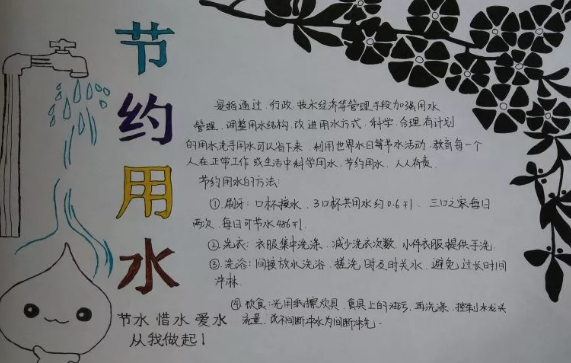 节约用水
是指通过行政、技术、经济等管理手段加强用水
管理，调整用水结构，改进用水方式，科学、合理、有计划
的用水洗手用水可以省下来，利用世界水日等节水活动，教育每一个
人在正常工作或生活中科学用水，节约用水，人人有责。
节约用水的方法：
①刷牙：口杯接水，3口杯共用水约0.6升。三口之家每日
两次，每日可节水486升。
②洗衣：衣服集中洗涤，减少洗衣次数，小件衣服提供手洗
③洗浴：间接放水洗浴，搓洗时及时关水，避免过长时间
冲淋。
④饮食：先用纸擦炊具、食具上的油污，再洗涤，控制水龙头
流量，改不间断冲水为间断冲洗。
节水 惜水 爱水
从我做起！